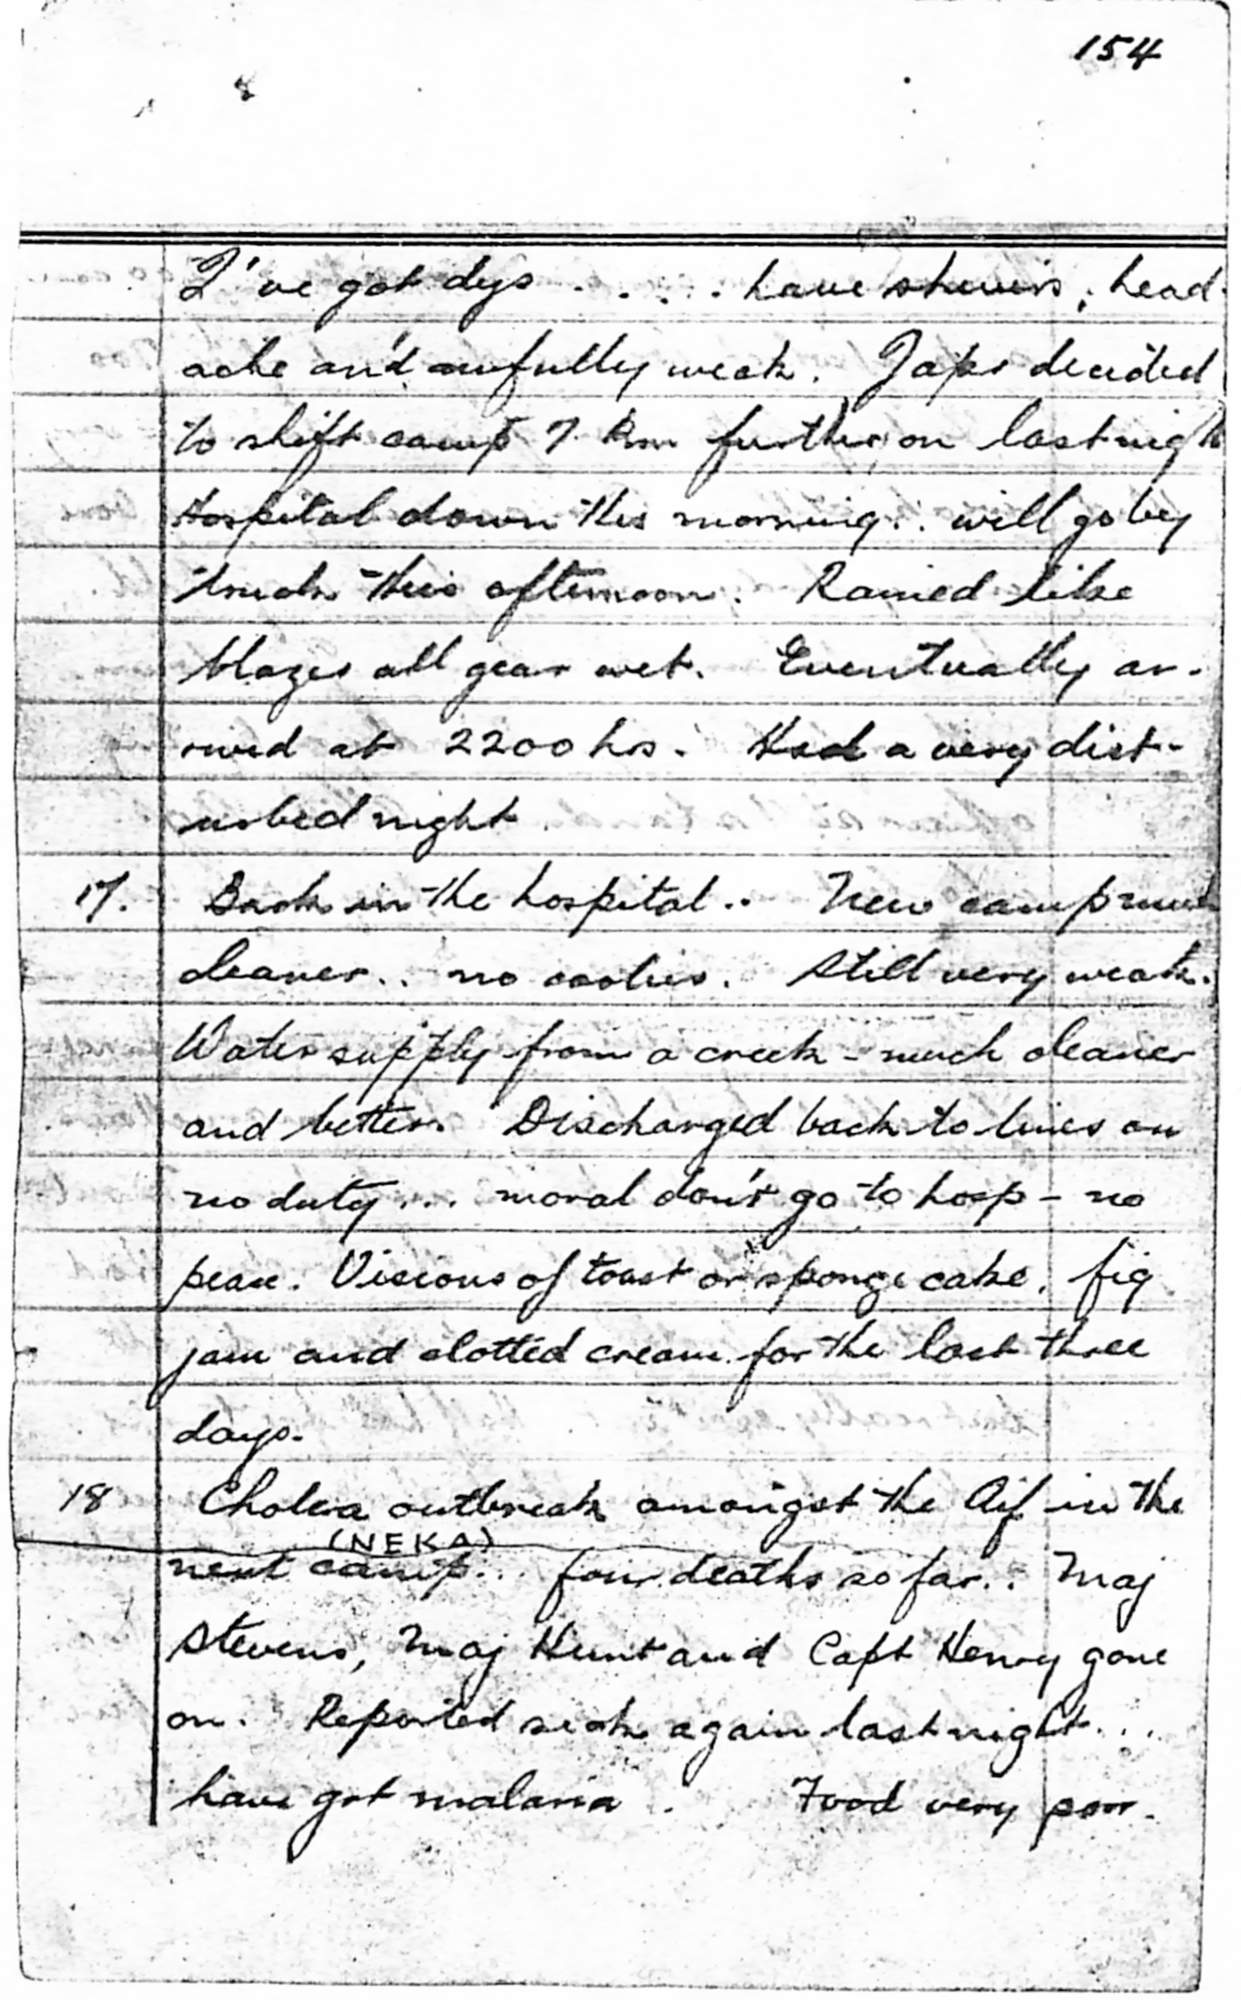 154
I've got dys . . . . . have shivers, head-
ache and awfully weak. Japs decided
to shift camp 7 Km further on last night
Hospital down this morning.. will go by
truck this afternoon. Rained like
blazes all gear wet. Eventually ar-
rived at 2200 hrs. Had a very dist-
urbed night.
17. Back in the hospital.. New camp much
cleaner.. no coolies. Still very weak.
Water supply from a creek - much cleaner
and better. Discharged back to lines on
no duty... moral don't go to hosp - no
peace. Visions of toast or sponge cake, fig
jam and clotted cream for the last three
days.
18 Cholera outbreak amongst the Aif in the
(NEKA)
next camp... four deaths so far.. Maj
Stevens, Maj Hunt and Capt Henry gone
on. Reported sick again last night...
have got malaria. Food very poor.